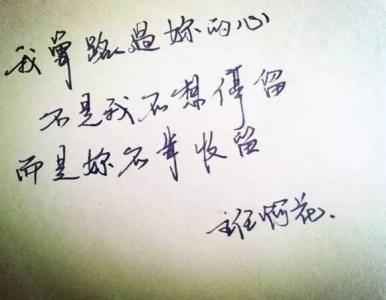 我曾路過妳的心
不是我不想停留
而是妳不肯收留